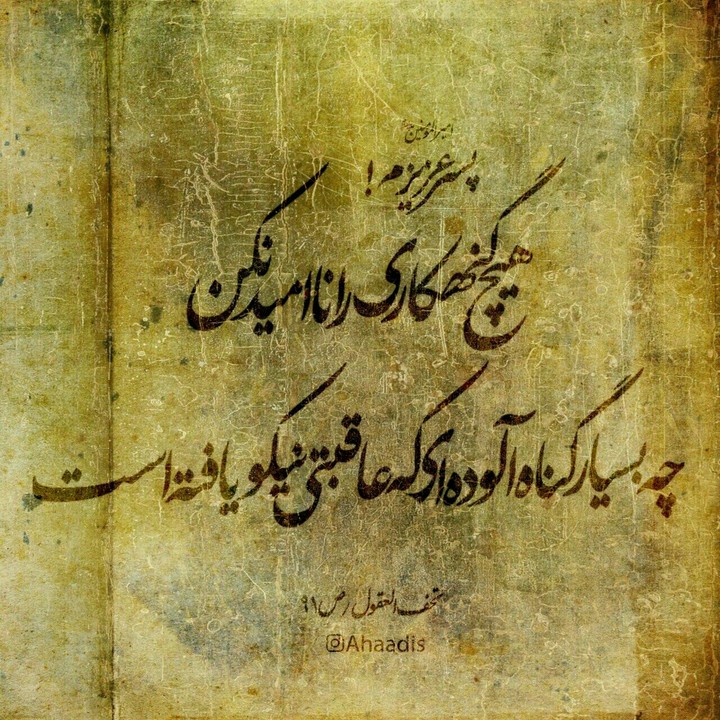 امیرالمؤمنین ع
پسر عزیزم!
هیچ گنهکاری را ناامید نکن
چه بسیار گناه آلوده ای که عاقبتی نیکو یافته است
تحف العقول ص ۹۱
@Ahaadis